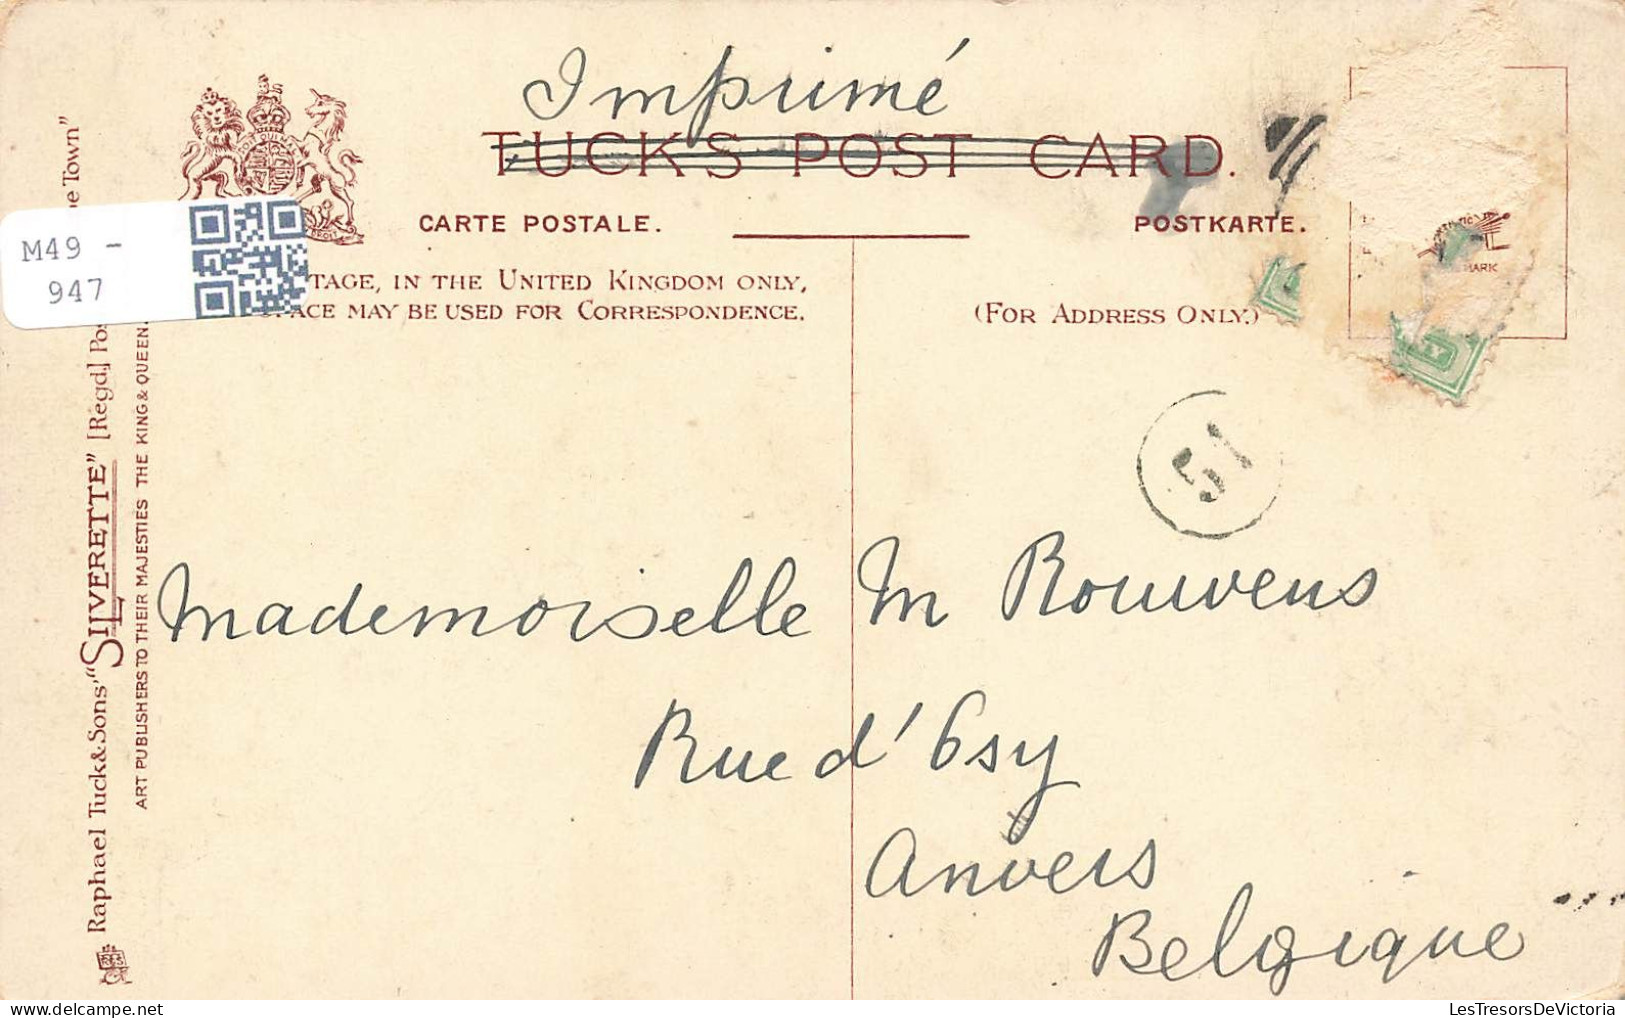 Imprimé
TUCK'S POST CARD.
CARTE POSTALE.
POSTKARTE.
TAGE, IN THE UNITED KINGDOM ONLY,
ACE MAY BE USED FOR CORRESPONDENCE.
(FOR ADDRESS ONLY.)
MARK
M49 -
947
51
Raphael Tuck & Sons' "SILVERETTE" [Regd.] Pos e Town"
ART PUBLISHERS TO THEIR MAJESTIES THE KING & QUEEN.
Mademoiselle M Rouwens
Rue d'Osy
Anvers
Belgique
LesTresorsDeVictoria